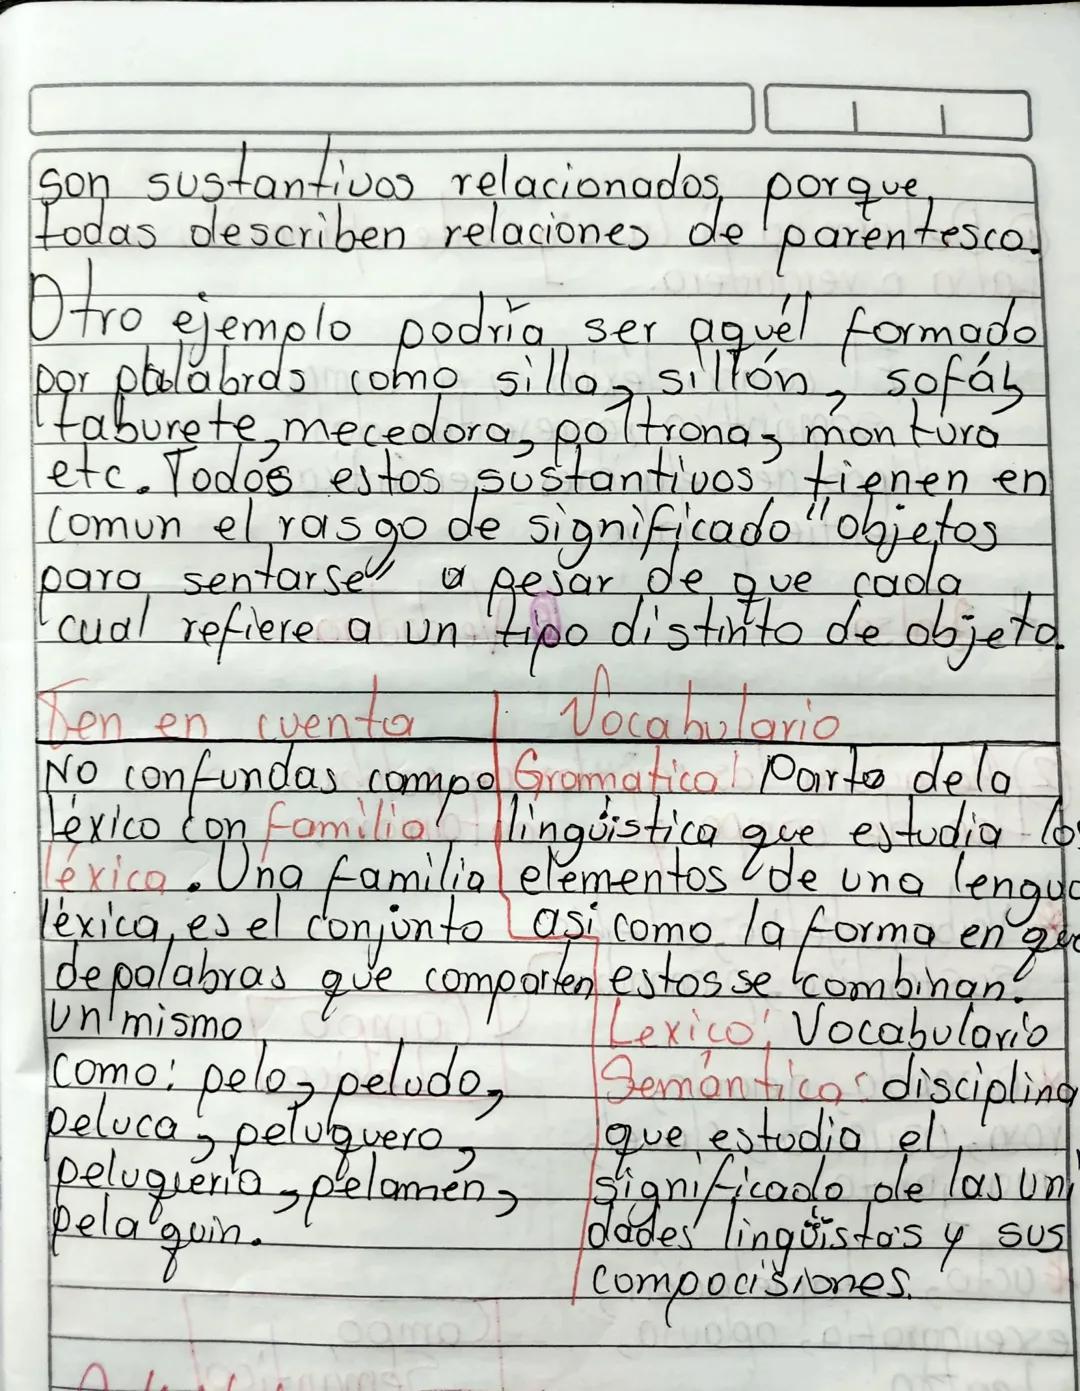 son sustantivos relacionados, porque,
todas describen relaciones de parentesco.
Otro ejemplo podría ser aquél formado
por palabras como silla, sillón, sofá,
taburete, mecedora, poltrona, montura
etc. Todos estos sustantivos, tienen en
comun el rasgo de significado "objetos
para sentarse" a pesar de que cada
cual refiere a un tipo distinto de objeto.
Ten en cuenta
No confundas campo
léxico con familia
léxica. Una familia
léxica, es el conjunto
de palabras que comparten
un mismo
como: pelo, peludo,
peluca, peluquero,
peluqueria, pelamen,
pelaquin.
Vocabulario
Gramatica: Parte de la
lingüistica que estudia los
elementos de una lengua
asi como la forma en que
estos se combinan.
Lexico: Vocabulario
Semántica: disciplina
que estudia el
significado de las uni
dades lingüistas y sus
compocisiones.